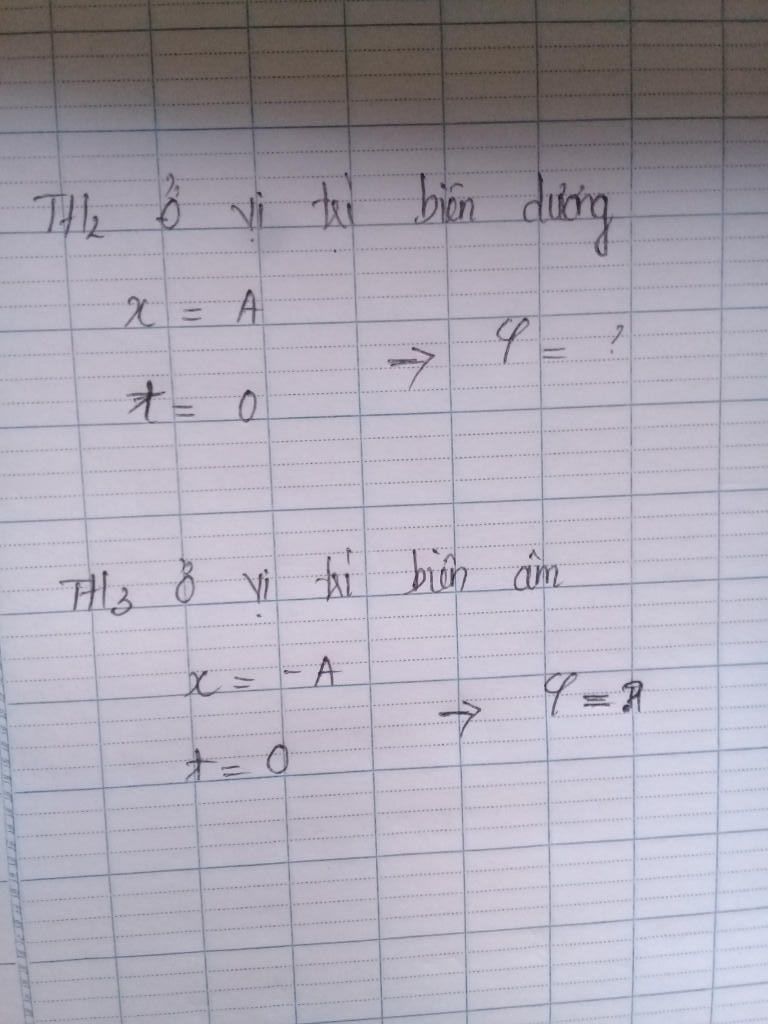 TH₂ Ở vị trí biên dương
x = A
→ φ = ?
t = 0
TH₃ Ở vị trí biên âm
x = -A
→ φ =
t = 0